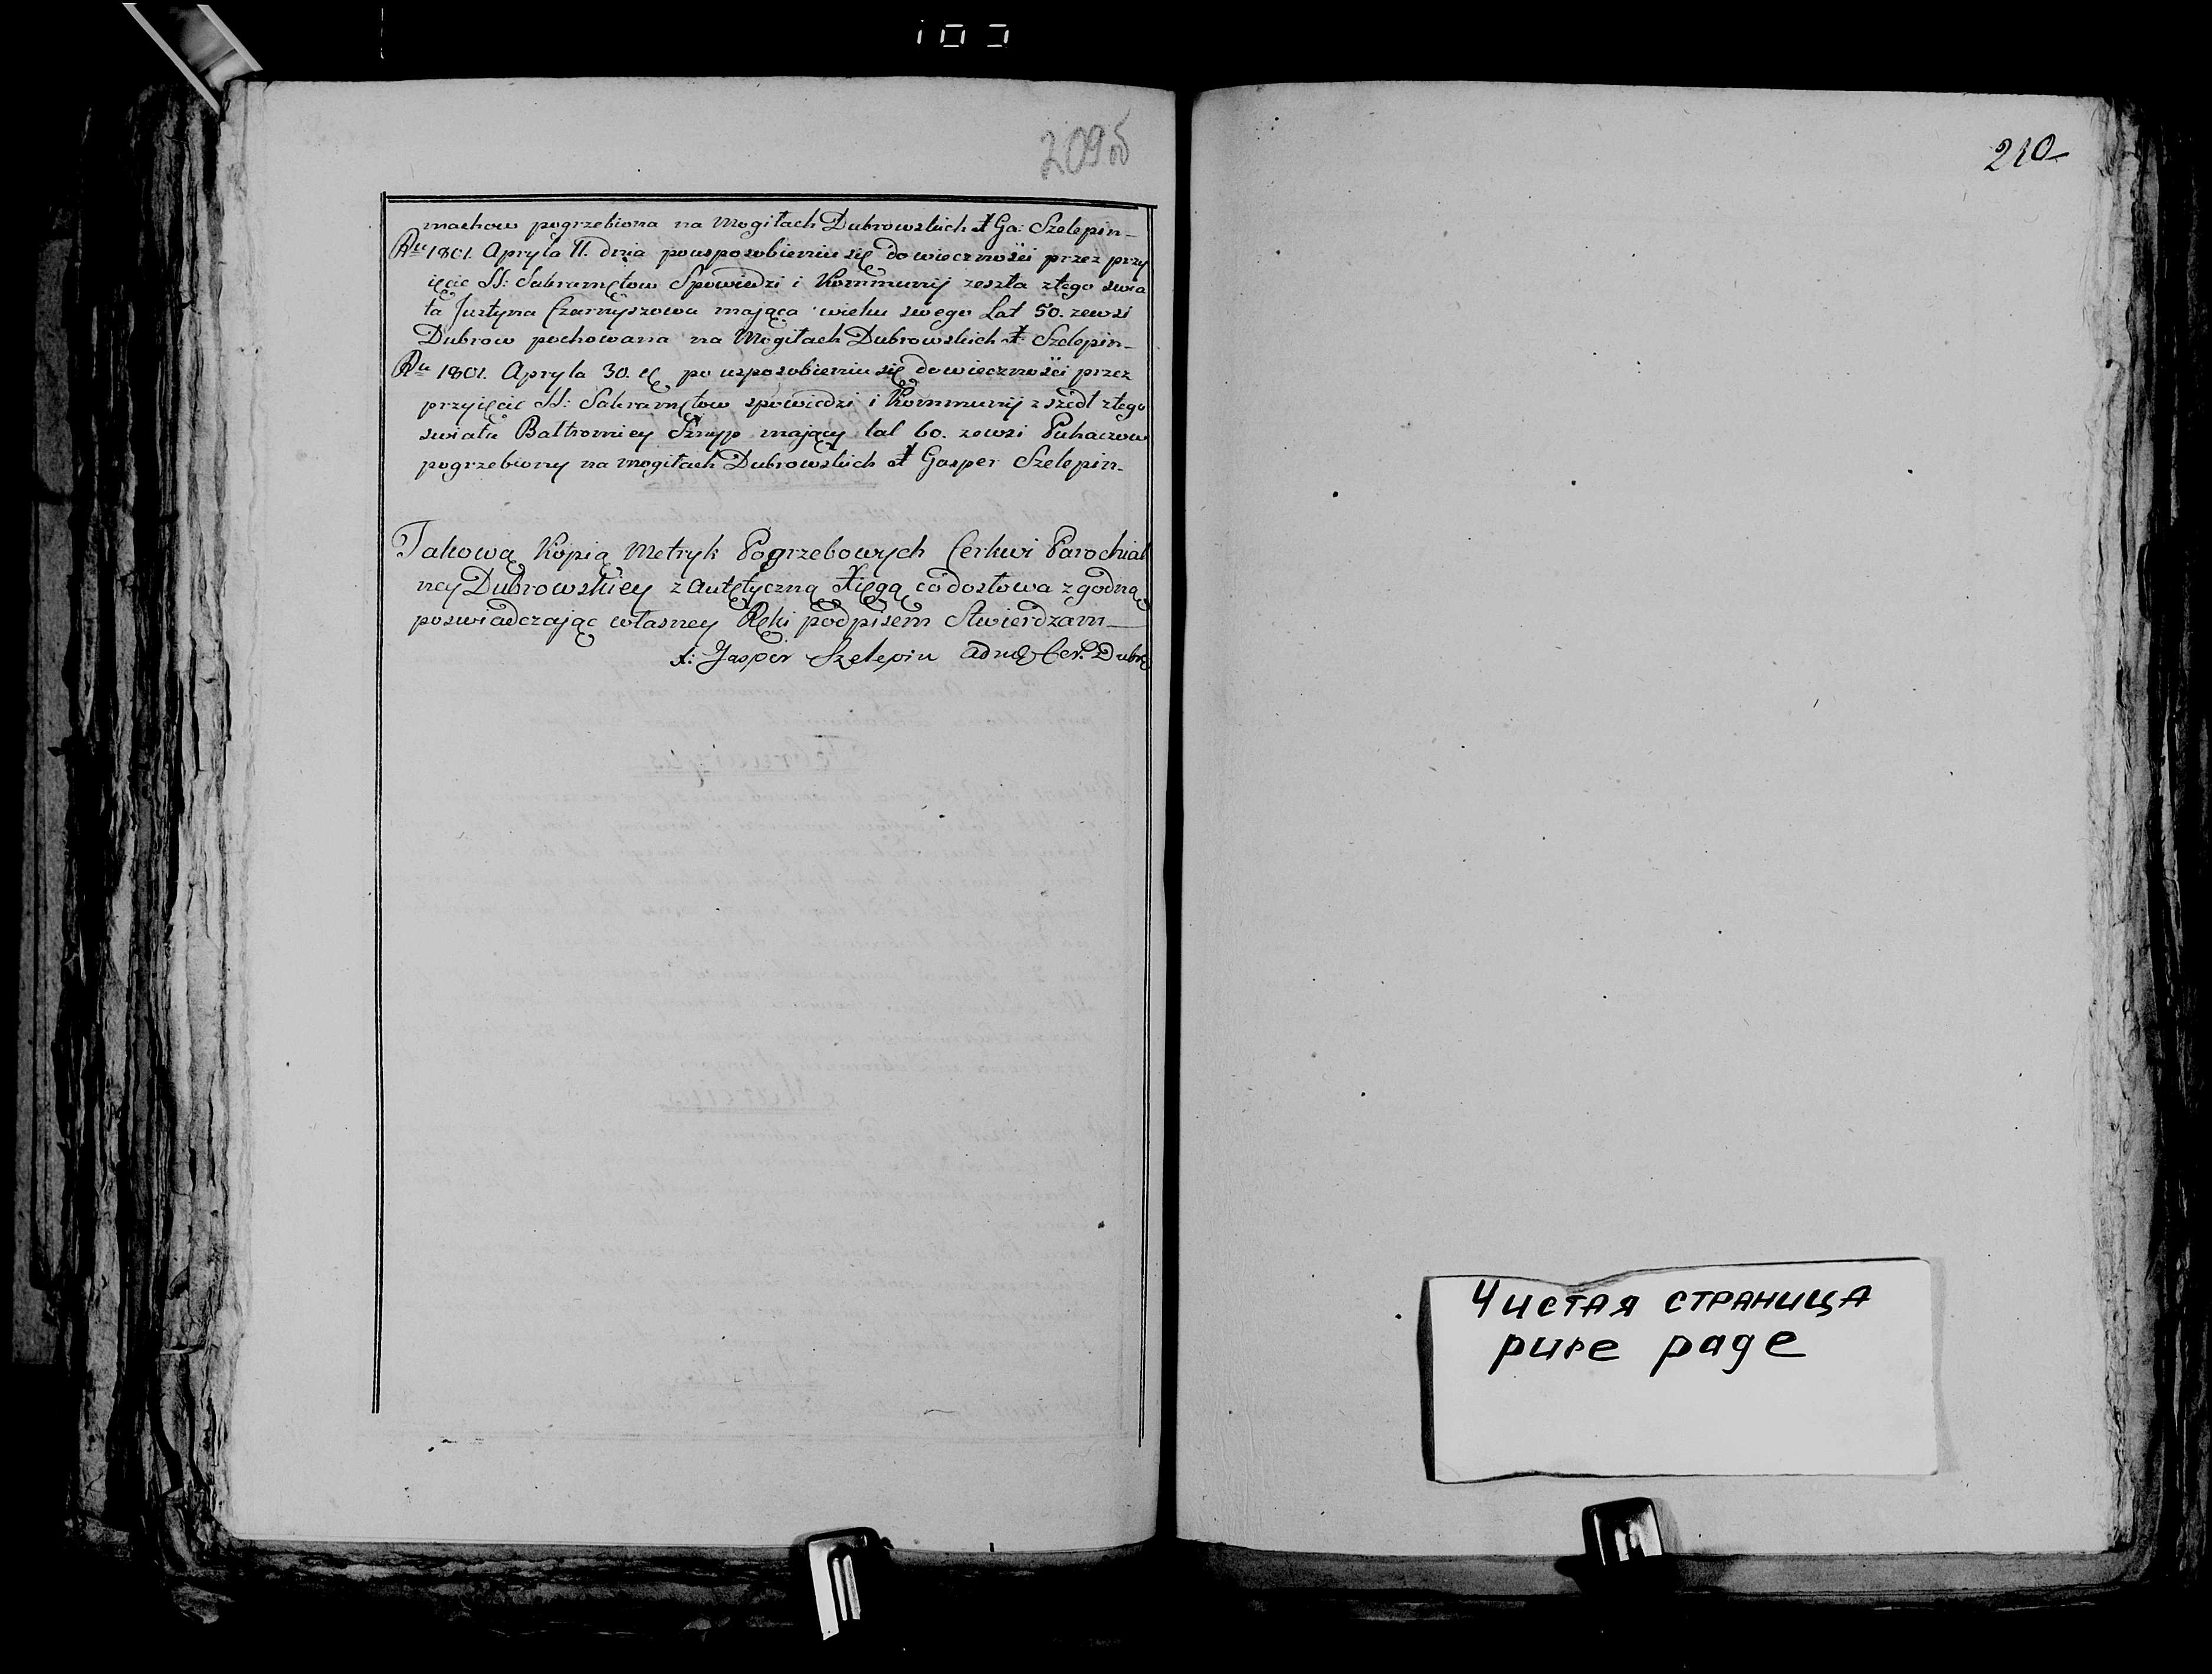 209 об
machow pogrzebiona na Mogiłach Dubrowskich X Ga: Szelepin
Ru 1801. Apryla 11. dnia pousposobieniu się dowiecznosci przez przy
ięcie SS: Sakramętow Spowiedzi i Kommunij zeszła ztego swia
ta Justyna Czarnyszowa mająca wieku swego Lat 50. zewsi
Dubrow pochowana na Mogiłach Dubrowskich X Szelepin
Ru 1801. Apryla 30. po usposobieniu się dowiecznosci przez
przyięcie SS: Sakramętow spowiedzi i Kommunij zszedł ztego
swiata Bałtromiey mający lat 60. zewsi Puhaczow
pogrzebiony na mogiłach Dubrowskich X Gasper Szelepin
Takową Kopią Metryk Pogrzebowych Cerkwi Parochial
ney Dubrowskiey z autętyczną Xięgą co dosłowa zgodną
poswiadczaiąc własney Ręki podpisem Stwierdzam
X: Jasper Szelepin Adm Cer: Dubr
210
Чистая страница
pure page